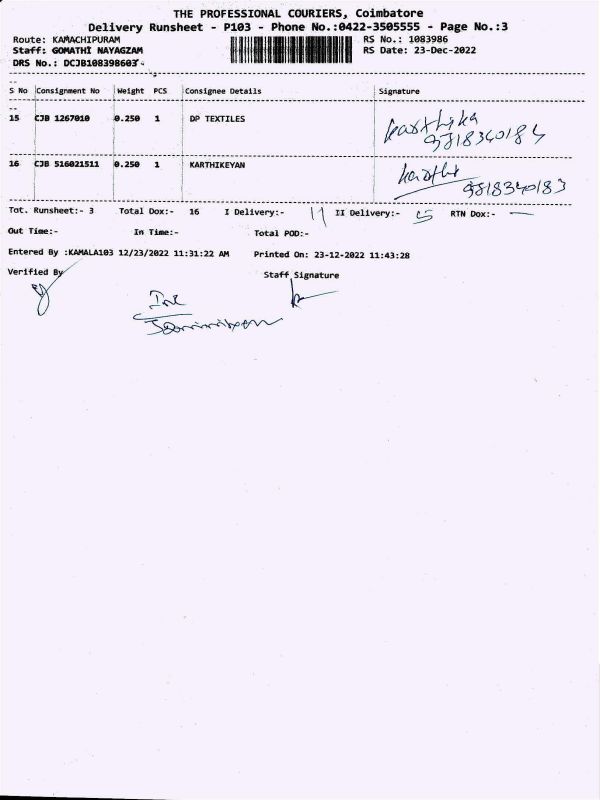 THE PROFESSIONAL COURIERS, Coimbatore
Delivery Runsheet - P103 - Phone No.:0422-3505555 - Page No.:3
Route: KAMACHIPURAM RS No.: 1083986
Staff: GOMATHI NAYAGZAM RS Date: 23-Dec-2022
DRS No.: DCJB108398603
S No Consignment No Weight PCS Consignee Details Signature
15 CJB 1267010 0.250 1 DP TEXTILES karthika
16 CJB 516021511 0.250 1 KARTHIKEYAN
Tot. Runsheet:- 3 Total Dox:- 16 I Delivery:- 11 II Delivery:- 05 RTN Dox:- —
Out Time:- In Time:- Total POD:-
Entered By :KAMALA103 12/23/2022 11:31:22 AM Printed On: 23-12-2022 11:43:28
Verified By Staff Signature